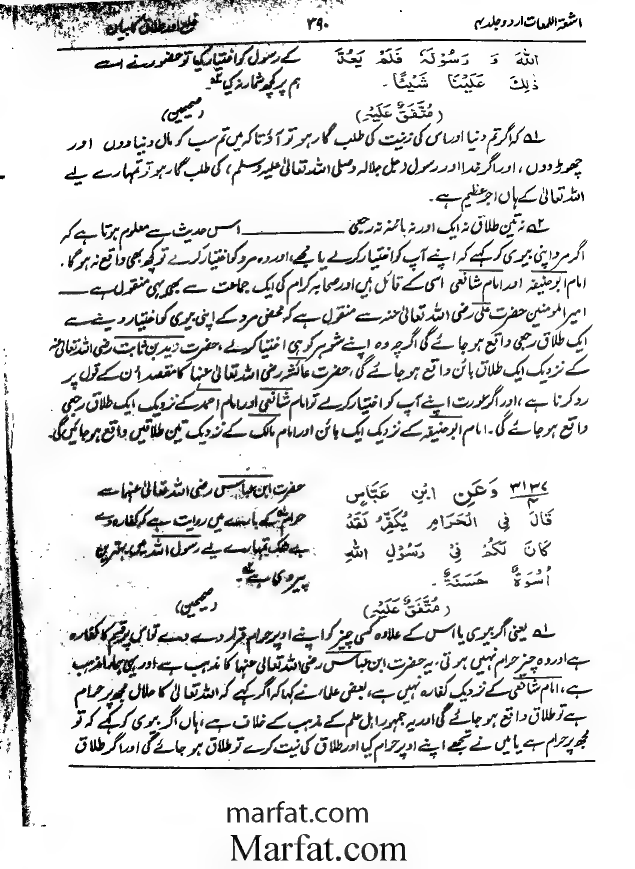 اشعۃ اللمعات اردو جلد ۴
۳۹۰
خلع اور طلاق کا بیان
اللهَ وَ رَسُولَهُ فَلَمْ يَعُدَّ
ذٰلِكَ عَلَيْنَا شَيْئًا۔
(مُتَّفَقٌ عَلَيْهِ)
کے رسول کو اختیار کیا تو حضور نے اسے
ہم پر کچھ شمار نہ کیا ۲ے
(صحیحین)
۱ے کہ اگر تم دنیا اور اس کی زینت کی طلب گار ہو تو آؤ تاکہ میں تم سب کو مال دنیا دوں اور
چھوڑ دوں، اور اگر خدا اور رسول (جل جلالہ و صلی اللہ تعالیٰ علیہ وسلم) کی طلب گار ہو تو تمہارے لیے
اللہ تعالیٰ کے ہاں اجر عظیم ہے۔
۲ے نہ تین طلاق نہ ایک اور نہ بائنہ نہ رجعی ــــــ اس حدیث سے معلوم ہوتا ہے کہ
اگر مرد اپنی بیوی کو کہے کہ اپنے آپ کو اختیار کرلے یا مجھے، اور وہ مرد کو اختیار کرلے تو کچھ بھی واقع نہ ہوگا۔
امام ابوحنیفہ اور امام شافعی اسی کے قائل ہیں اور صحابہ کرام کی ایک جماعت سے بھی یہی منقول ہے ــــــ
امیر المومنین حضرت علی رضی اللہ تعالیٰ عنہ سے منقول ہے کہ محض مرد کے اپنی بیوی کو اختیار دینے سے
ایک طلاق رجعی واقع ہو جائے گی اگرچہ وہ اپنے شوہر کو ہی اختیار کرلے، حضرت زید بن ثابت رضی اللہ تعالیٰ عنہ
کے نزدیک ایک طلاق بائن واقع ہو جائے گی، حضرت عائشہ رضی اللہ تعالیٰ عنہا کا مقصد اُن کے قول پر
رد کرنا ہے، اور اگر عورت اپنے آپ کو اختیار کرلے تو امام شافعی اور امام احمد کے نزدیک ایک طلاق رجعی
واقع ہو جائے گی۔ امام ابوحنیفہ کے نزدیک ایک بائن اور امام مالک کے نزدیک تین طلاقیں واقع ہو جائیں گی۔
۳۱۳۷ وَعَنِ ابْنِ عَبَّاسٍ
قَالَ فِي الْحَرَامِ يُكَفِّرُ لَقَدْ
كَانَ لَكُمْ فِيْ رَسُوْلِ اللهِ
اُسْوَةٌ حَسَنَةٌ۔
(مُتَّفَقٌ عَلَيْهِ)
حضرت ابن عباس رضی اللہ تعالیٰ عنہما سے
حرام کے بارے میں روایت ہے کہ کفارہ دے
بے شک تمہارے لیے رسول اللہ میں بہترین
پیروی ہے ۱ے
(صحیحین)
۱ے یعنی اگر بیوی یا اس کے علاوہ کسی چیز کو اپنے اوپر حرام قرار دے دے تو اس پر قسم کا کفارہ
ہے اور وہ چیز حرام نہیں ہوتی، یہ حضرت ابن عباس رضی اللہ تعالیٰ عنہما کا مذہب ہے اور یہی ہمارا مذہب
ہے، امام شافعی کے نزدیک کفارہ نہیں ہے، بعض علماء نے کہا کہ اگر کہے کہ اللہ تعالیٰ کا حلال مجھ پر حرام
ہے تو طلاق واقع ہو جائے گی اور یہ جمہور اہل علم کے مذہب کے خلاف ہے، ہاں اگر بیوی کو کہے کہ تو
مجھ پر حرام ہے یا میں نے تجھے اپنے اوپر حرام کیا اور طلاق کی نیت کرے تو طلاق ہو جائے گی اور اگر طلاق
marfat.com
Marfat.com